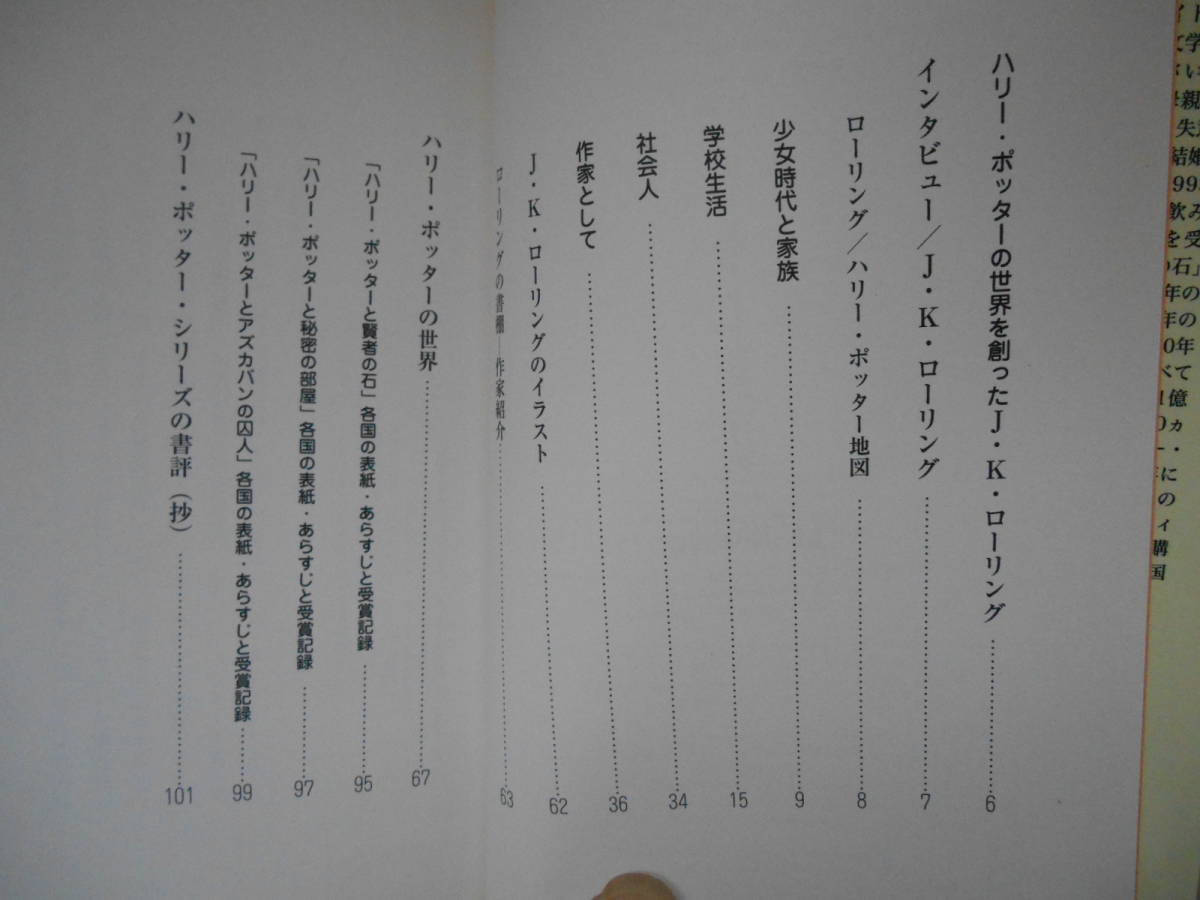 ハリー・ポッターの世界を創ったJ・K・ローリング……6
インタビュー/J・K・ローリング……7
ローリング/ハリー・ポッター地図……8
少女時代と家族……9
学校生活……15
社会人……34
作家として……36
J・K・ローリングのイラスト……62
ローリングの書棚—作家紹介……63
ハリー・ポッターの世界……67
「ハリー・ポッターと賢者の石」各国の表紙・あらすじと受賞記録……95
「ハリー・ポッターと秘密の部屋」各国の表紙・あらすじと受賞記録……97
「ハリー・ポッターとアズカバンの囚人」各国の表紙・あらすじと受賞記録……99
ハリー・ポッター・シリーズの書評(抄)……101